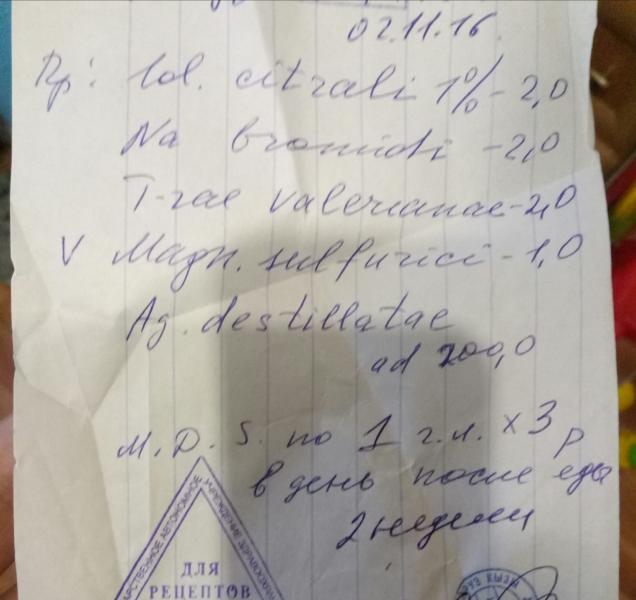 02.11.16.
Rp: Sol. citrali 1% - 2,0
Na bromidi - 2,0
T-rae valerianae - 2,0
V Magn. sulfurici - 1,0
Aq. destillatae
ad 200,0
M. D. S. по 1 г.л. x 3 р
в день после еды
2 недели
АРСТВЕННОЕ АВТОНОМНОЕ УЧРЕЖДЕНИЕ ЗДРАВООХРАН
ДЛЯ
РЕЦЕПТОВ